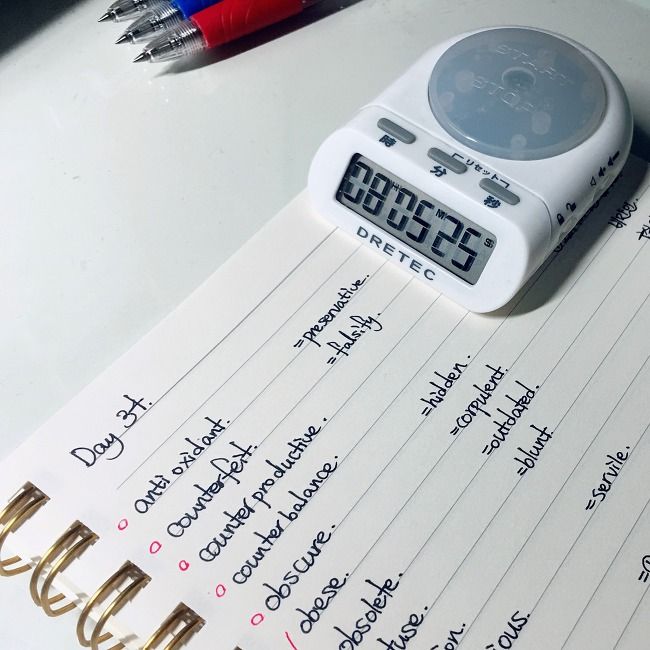 START
STOP
リセット
時 分 秒
08 H 05 M 25 S
DRETEC
Day 34.
anti oxidant. =preservative.
counterfeit. =falsify.
counter productive.
counter balance.
obscure. =hidden.
obese. =corpulent.
obsolete. =outdated.
tuse. =blunt.
on.
ious. =servile.